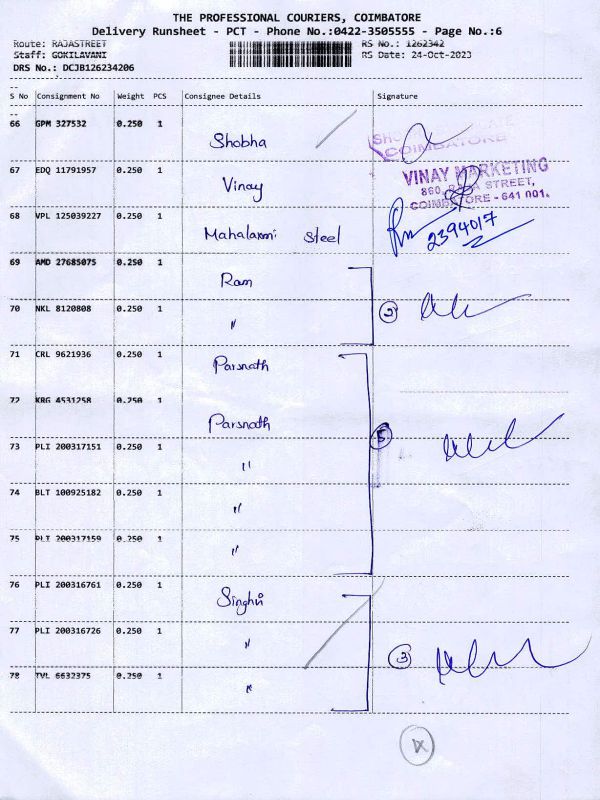 THE PROFESSIONAL COURIERS, COIMBATORE
Delivery Runsheet - PCT - Phone No.:0422-3505555 - Page No.:6
Route: RAJASTREET RS No.: 1262342
Staff: GOKILAVANI RS Date: 24-Oct-2023
DRS No.: DCJB126234206
S No Consignment No Weight PCS Consignee Details Signature
66 GPM 327532 0.250 1 Shobha
COIMBATORE
67 EDQ 11791957 0.250 1 Vinay
VINAY MARKETING
860, RAJA STREET,
COIMBATORE - 641 001.
68 VPL 125039227 0.250 1 Mahalaxmi Steel
2394017
69 AMD 27685075 0.250 1 Ram
70 NKL 8120808 0.250 1 " 2
71 CRL 9621936 0.250 1 Parsnath
72 KRG 4531258 0.250 1 Parsnath
73 PLI 200317151 0.250 1 " 5
74 BLT 100925182 0.250 1 "
75 PLI 200317159 0.250 1 "
76 PLI 200316761 0.250 1 Singhvi
77 PLI 200316726 0.250 1 " 3
78 TVL 6632375 0.250 1 "